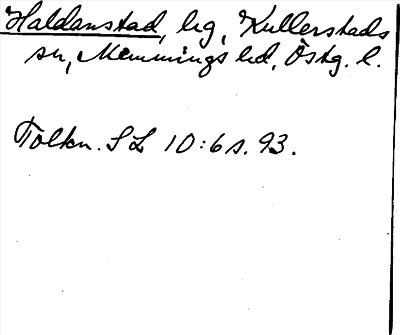 Haldanstad, bg, Kullerstads
sn, Memmings hd, Östg. l.
Tolkn. SL 10:6 s. 93.